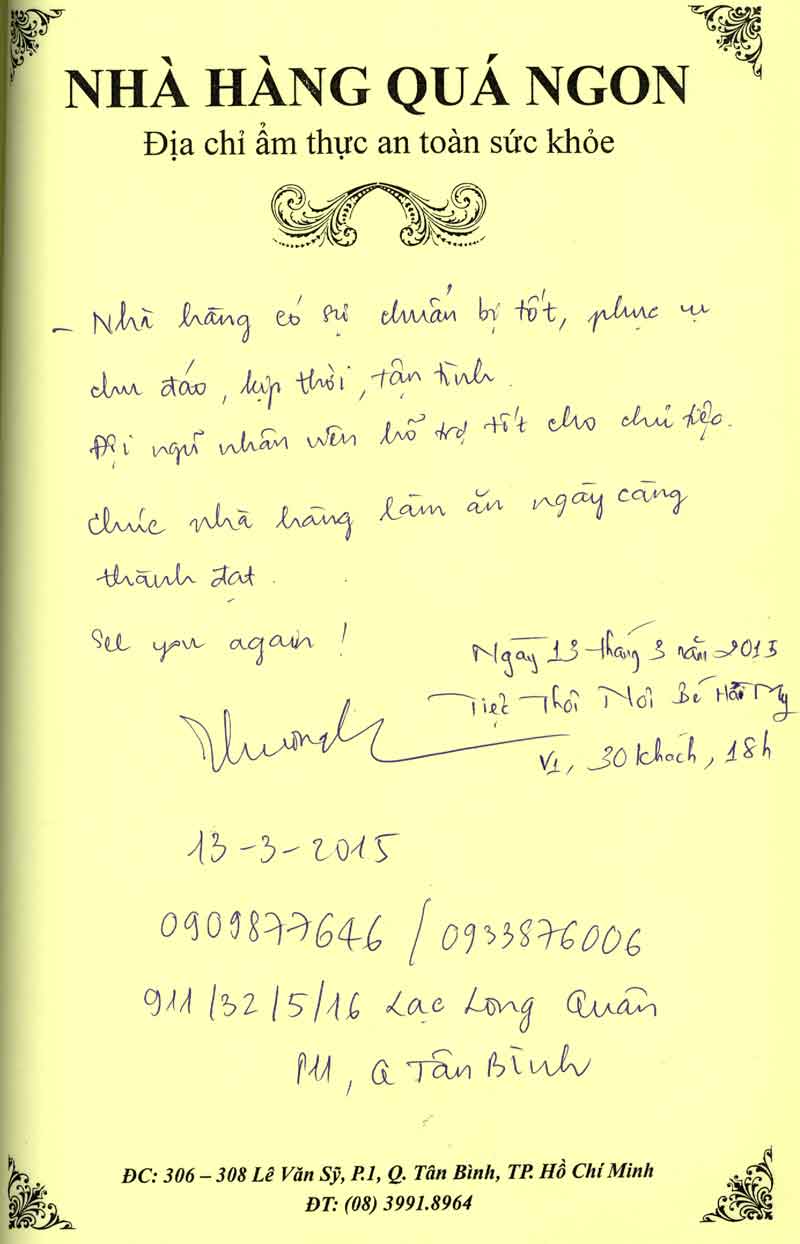 NHÀ HÀNG QUÁ NGON
Địa chỉ ẩm thực an toàn sức khỏe
- Nhà hàng có sự chuẩn bị tốt, phục vụ
chu đáo, kịp thời, tận tình.
Đội ngũ nhân viên hỗ trợ tốt cho chủ tiệc.
Chúc nhà hàng làm ăn ngày càng
thành đạt.
See you again!
Ngày 13 tháng 3 năm 2015
Tiệc Thôi Nôi Bé Hải My
V1, 30 khách, 18h
13-3-2015
0909877646 / 0933876006
911/32/5/16 Lạc Long Quân
P11, Q Tân Bình
ĐC: 306 – 308 Lê Văn Sỹ, P.1, Q. Tân Bình, TP. Hồ Chí Minh
ĐT: (08) 3991.8964